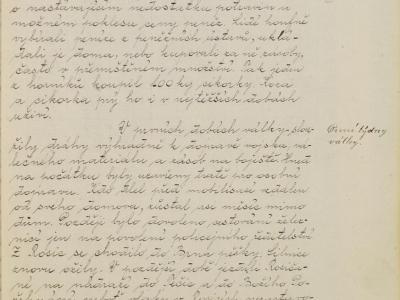 o nastávajícím nedostatku potravin a
možném poklesu ceny peněz. Lidé houfně
vybírali peníze z peněžních ústavů, uklá-
dali je doma, nebo kupovali za ně zásoby,
často v přemrštěném množství. Tak jeden
z horníků koupil 100 kg cikorky. Koza
a cikorka prý ho i v nejtěžších dobách
uživí.
V prvních dobách války slou-
žily dráhy výhradně k dopravě vojska, vá-
lečného materiálu a zásob na bojiště. Hned
na počátku byly uzavřeny tratě pro osobní
dopravu. Kdo dlel před mobilisací vzdálen
od svého domova, zůstal use měsíc mimo
dům. Později bylo dovoleno cestování želez-
nicí jen na povolení policejního ředitelství
Z Rosic se chodilo do Brna pěšky. Silnice
znovu ožily. V pozdější době jezdili Rosiča-
né na nádraží do Tetčic a do Božího Po-
První týdny
války.